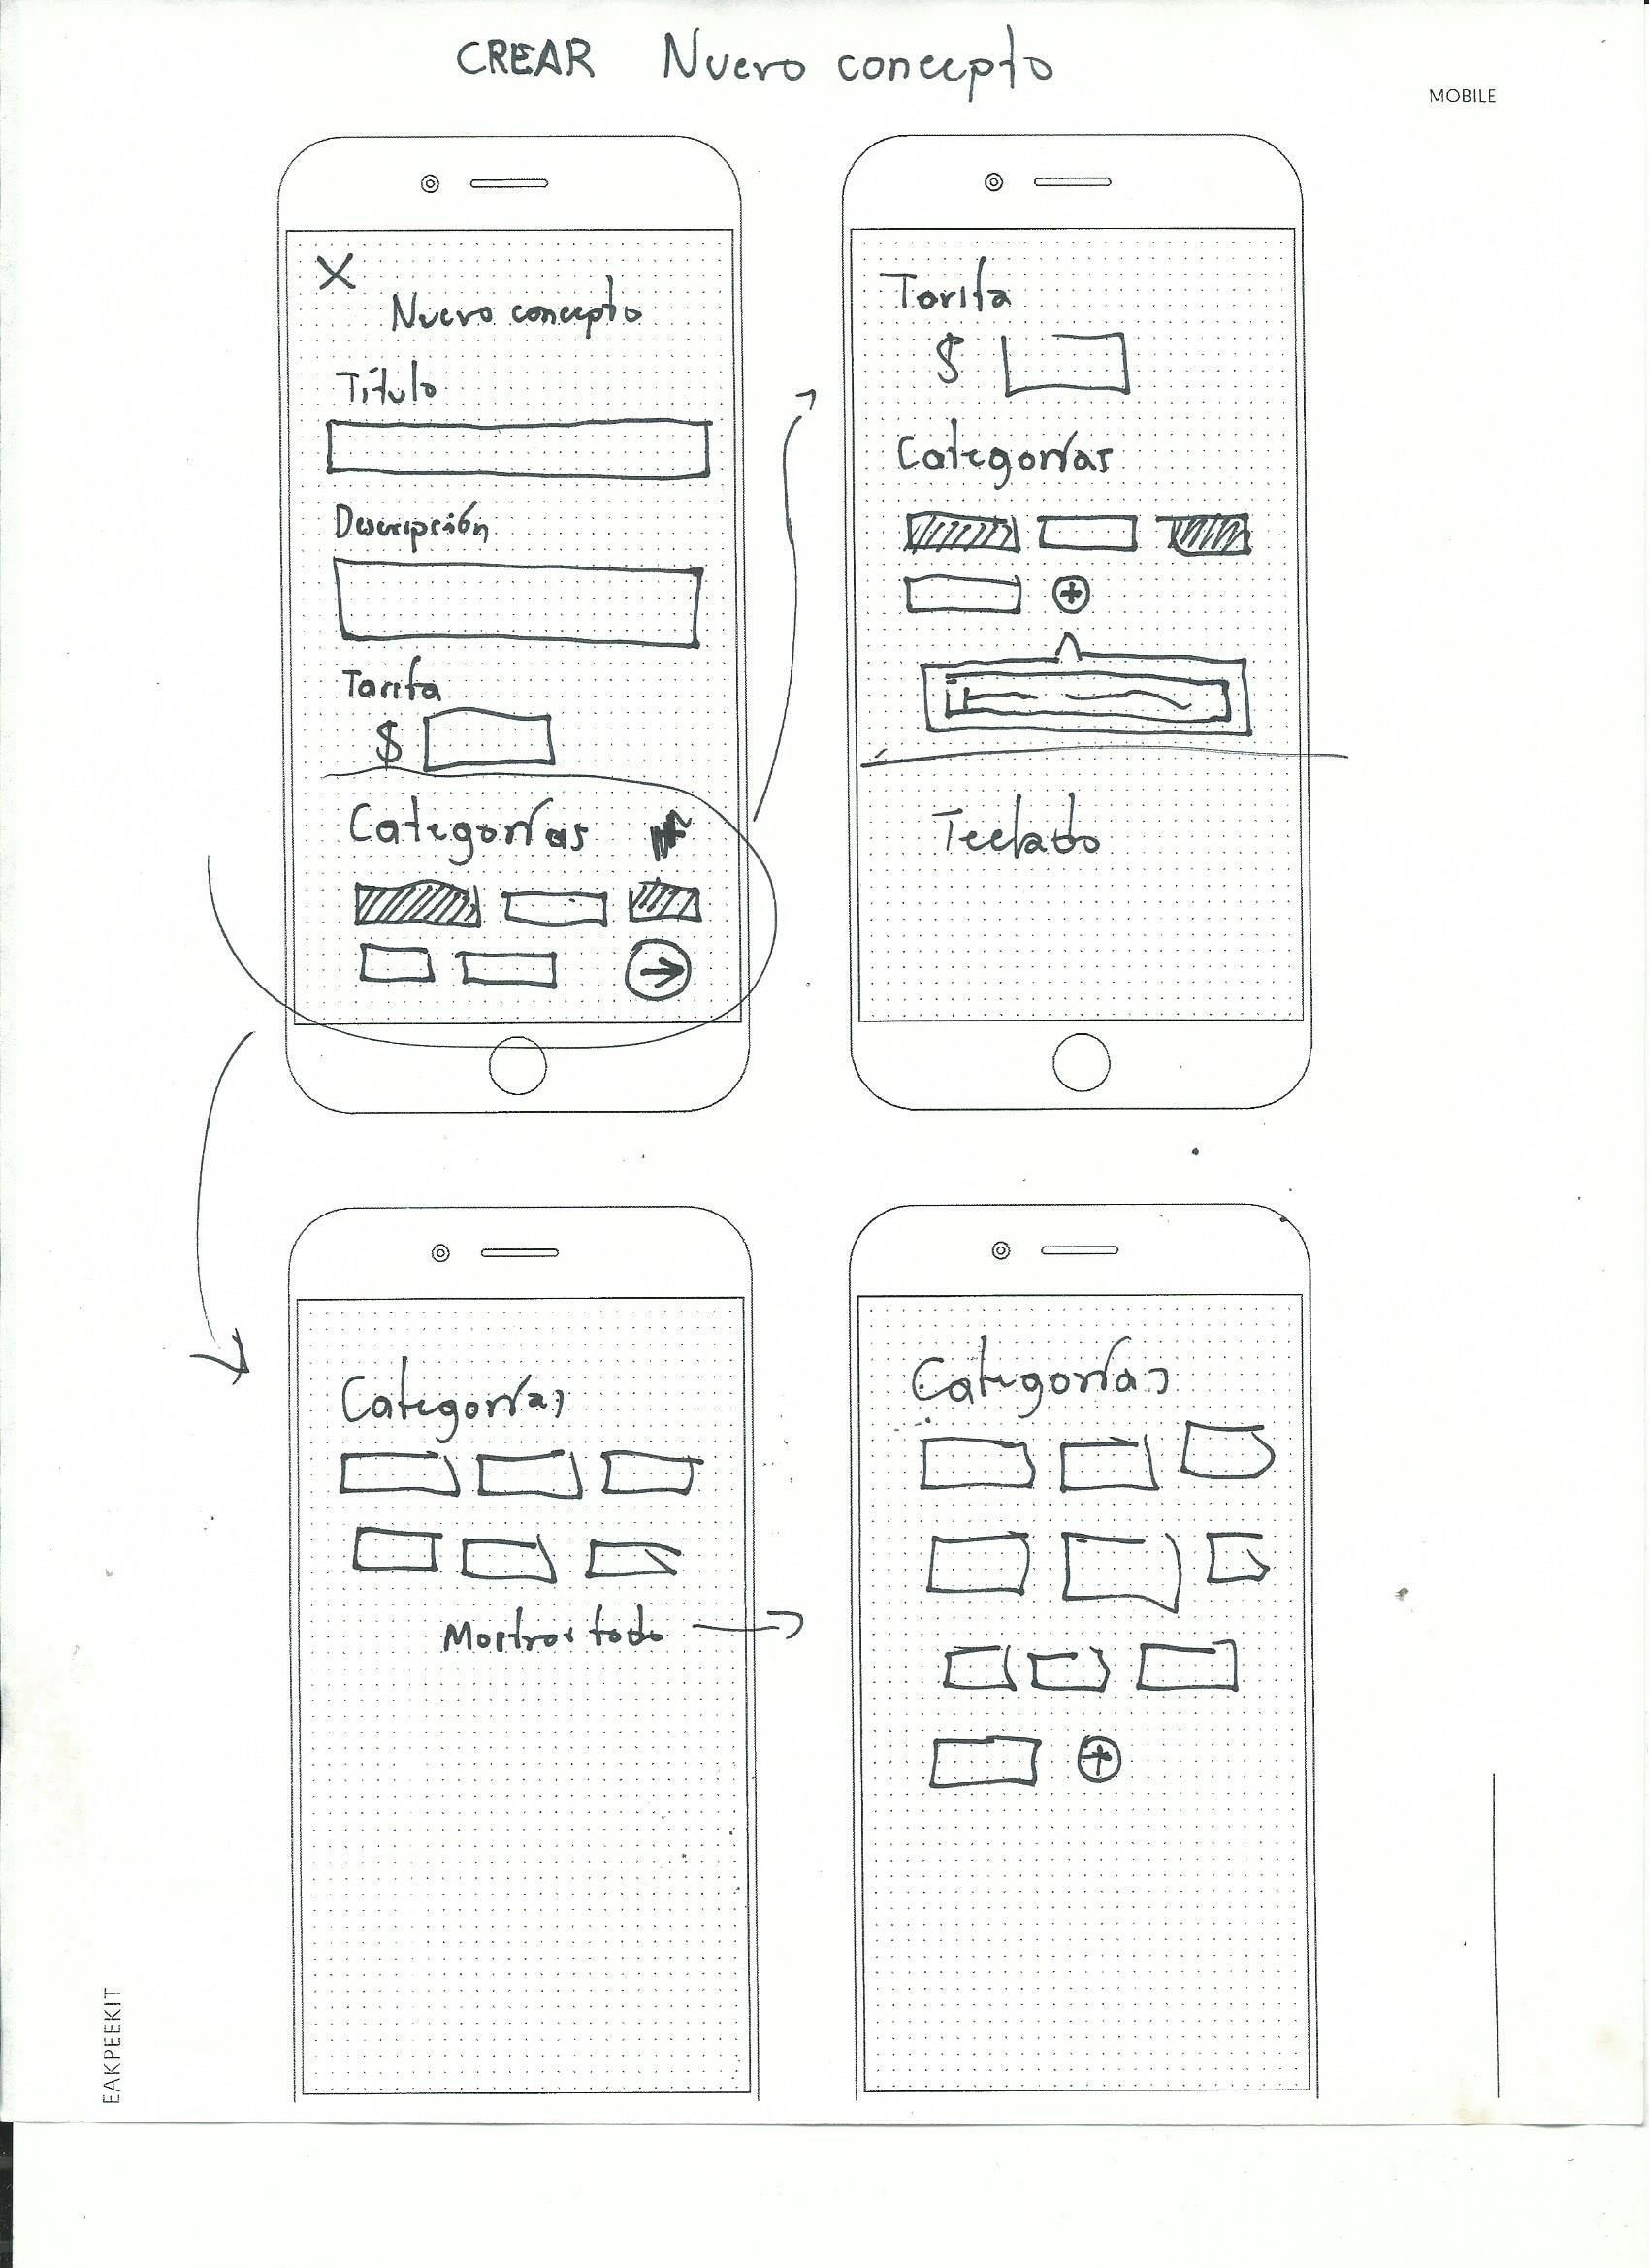 CREAR Nuevo concepto
MOBILE
X
Nuevo concepto
Título
Descripción
Tarifa
$
Categorías
Tarifa
$
Categorías
Teclado
Categorías
Mostrar todo
Categorías
EAKPEEKIT